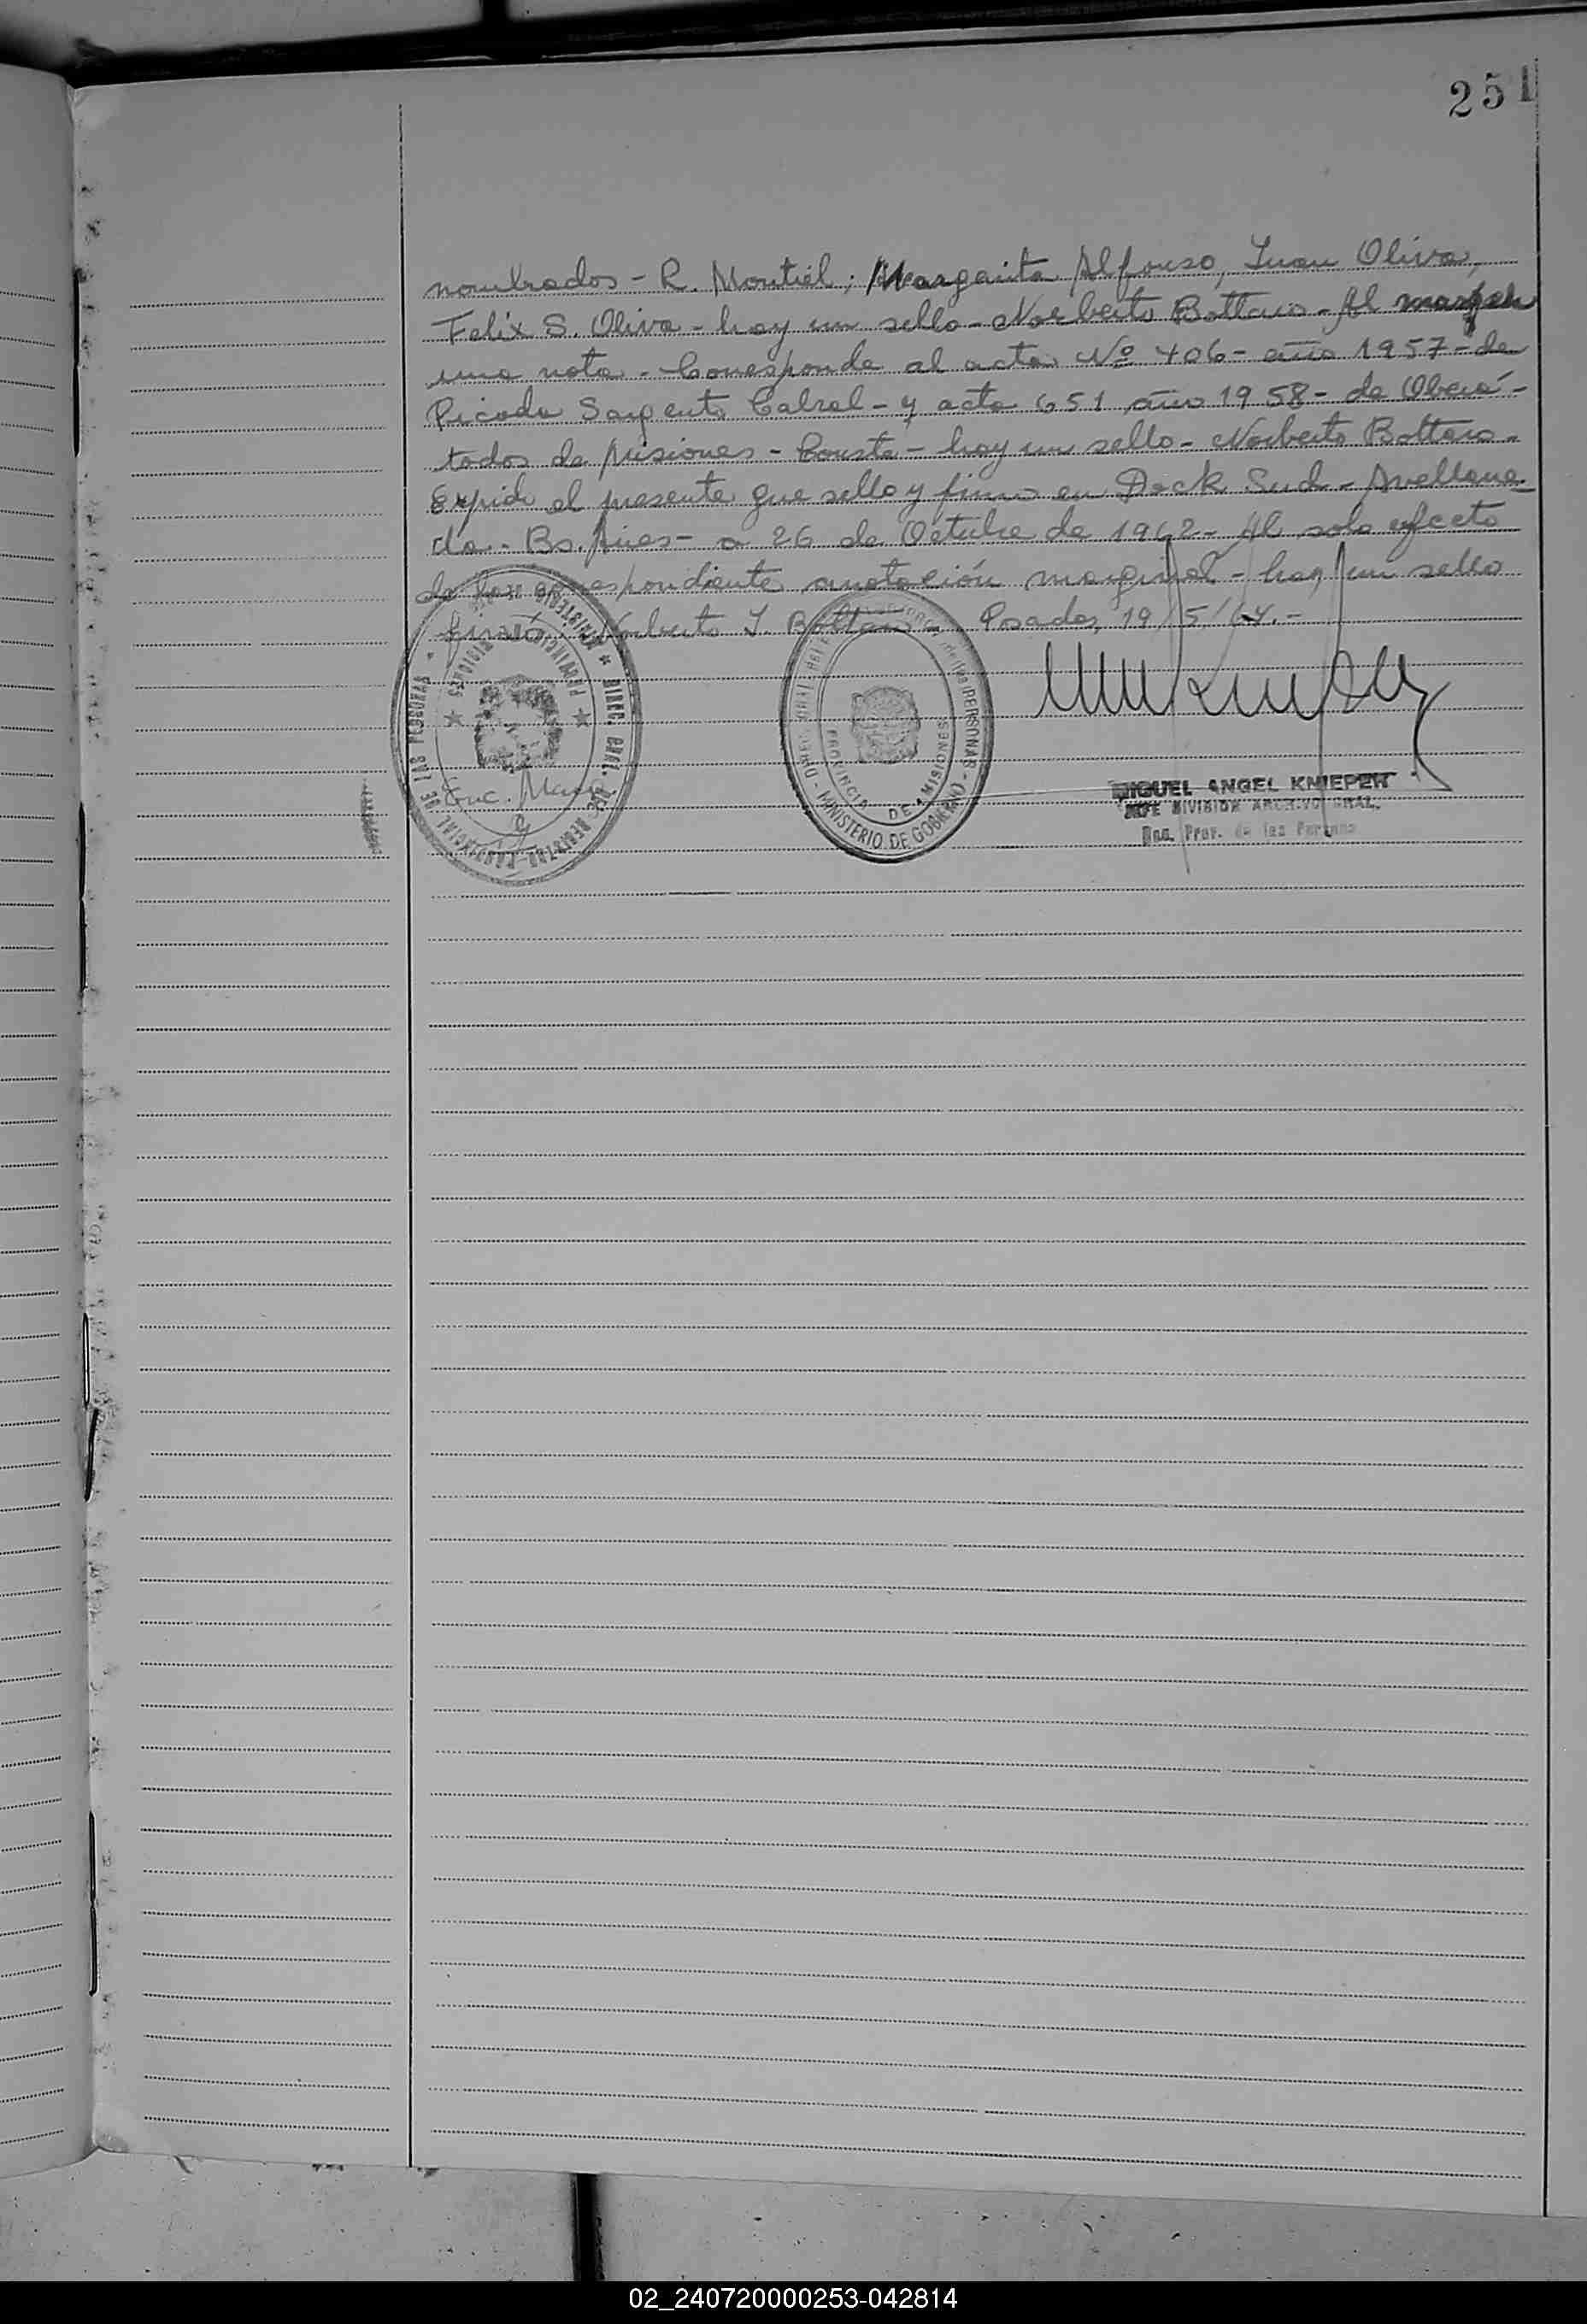 251
nombrados - R. Montiel; Margarita Alfonso, Juan Oliva,
Felix S. Oliva - hay un sello - Norberto Bottaro - Al margen
una nota - Corresponde al acta Nº 406 - año 1957 - de
Picada Sargento Cabral - y acta 651 año 1958 - de Oberá -
todos de Misiones - Consta - hay un sello - Norberto Bottaro -
Expido el presente que sello y firmo en Dock Sud - Avellane-
da - Bs. Aires - a 26 de Octubre de 1962 - Al solo efecto
de la correspondiente anotación marginal - hay un sello
firmado: Norberto J. Bottaro - Posadas, 19/5/64.-
DIREC. GRAL. DEL REGISTRO PROVINCIAL DE LAS PERSONAS
PROVINCIA MISIONES
MINISTERIO DE GOBIERNO
PROVINCIA DE MISIONES
MIGUEL ANGEL KNIEPER
JEFE DIVISION ARCHIVO GRAL.
Prov. de las Personas
02_240720000253-042814